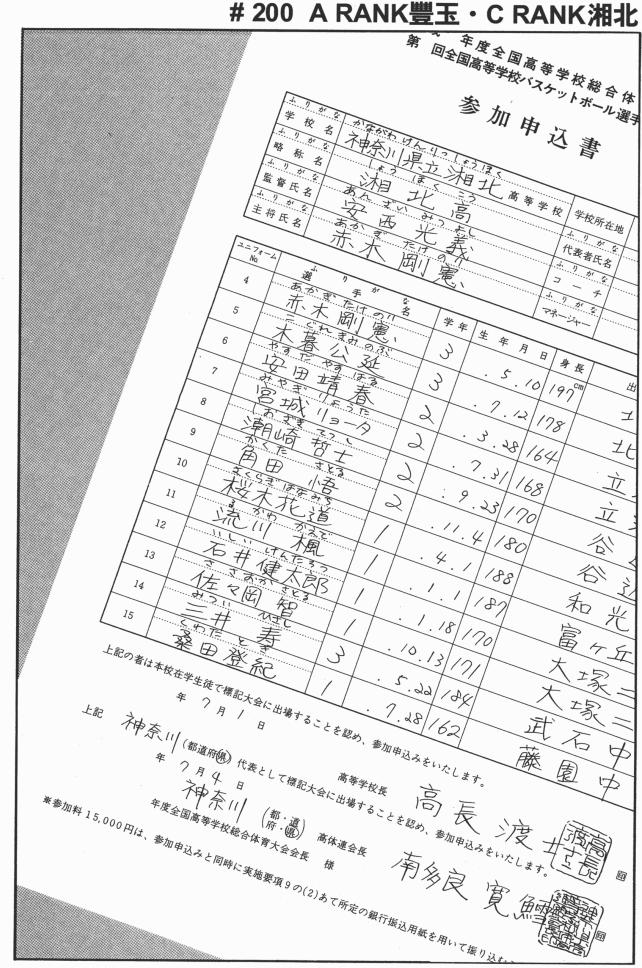 #200 A RANK豊玉・C RANK湘北
年度全国高等学校総合体
第 回全国高等学校バスケットボール選手
参加申込書
ふりがな かながわけんりつしょうほく
学校名 神奈川県立湘北高等学校 学校所在地
ふりがな しょうほくこう ふりがな
略称名 湘北高 代表者氏名
ふりがな あんざいみつよし ふりがな
監督氏名 安西光義 コーチ
ふりがな あかぎたけのり ふりがな
主将氏名 赤木剛憲 マネージャー
ユニフォームNo. ふりがな 選手名 学年 生年月日 身長 出
あかぎたけのり
4 赤木剛憲 3 .5.10 197cm 北
こぐれきみのぶ
5 木暮公延 3 .7.12 178 北
やすだやすはる
6 安田靖春 2 .3.28 164 立
みやぎりょうた
7 宮城リョータ 2 .7.31 168 立
しおざきてつし
8 潮崎哲士 2 .9.23 170 谷
かくたさとる
9 角田悟 2 .11.4 180 谷
さくらぎはなみち
10 桜木花道 1 .4.1 188 和光
るかわかえで
11 流川楓 1 .1.1 187 富ヶ丘
いしいけんたろう
12 石井健太郎 1 .1.18 170 大塚二
ささおかさとる
13 佐々岡智 1 .10.13 171 大塚二
みついひさし
14 三井寿 3 .5.22 184 武石中
くわたとき
15 桑田登紀 1 .7.28 162 藤園中
上記の者は本校在学生徒で標記大会に出場することを認め、参加申込みをいたします。
年7月1日
高等学校長 高長渡士
上記 神奈川(都道府県)代表として標記大会に出場することを認め、参加申込みをいたします。
年7月4日
神奈川(都・道府・県)高体連会長 南多良寛鱈
年度全国高等学校総合体育大会会長 様
※参加料15,000円は、参加申込みと同時に実施要項9の(2)あて所定の銀行振込用紙を用いて振り込む